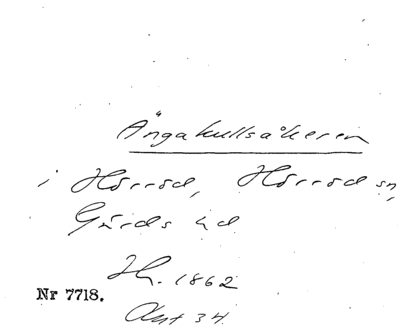 Ängakullsåkeren
i Hörröd, Hörröds sn,
Gärds hd
H. 1862
Nr 7718.
Avst 34.